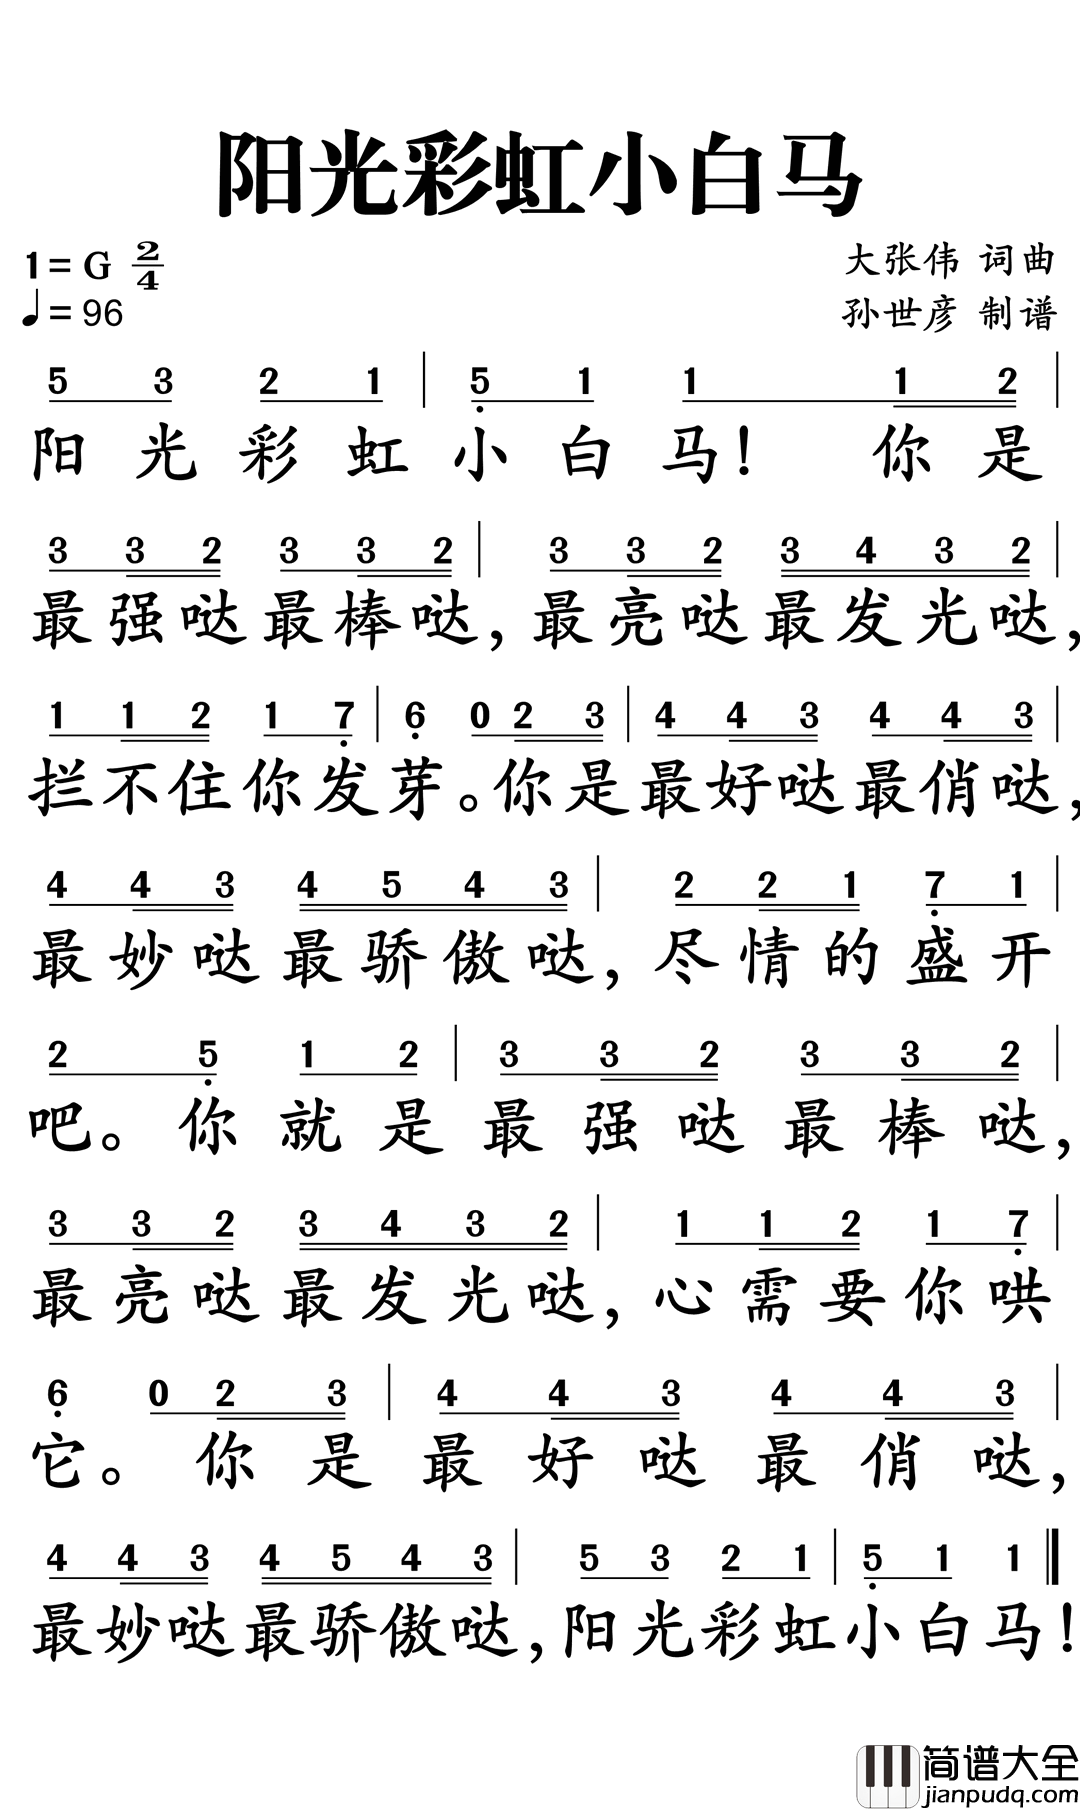 阳光彩虹小白马
1= G 2/4
大张伟 词曲
♩= 96
孙世彦 制谱
5 3 2 1 | 5̣ 1 1 1 2 |
阳光彩虹小白马! 你是
3 3 2 3 3 2 | 3 3 2 3 4 3 2 |
最强哒最棒哒,最亮哒最发光哒,
1 1 2 1 7̣ | 6̣ 0 2 3 | 4 4 3 4 4 3 |
拦不住你发芽。你是最好哒最俏哒,
4 4 3 4 5 4 3 | 2 2 1 7̣ 1 |
最妙哒最骄傲哒,尽情的盛开
2 5̣ 1 2 | 3 3 2 3 3 2 |
吧。你就是最强哒最棒哒,
3 3 2 3 4 3 2 | 1 1 2 1 7̣ |
最亮哒最发光哒,心需要你哄
6̣ 0 2 3 | 4 4 3 4 4 3 |
它。你是最好哒最俏哒,
4 4 3 4 5 4 3 | 5 3 2 1 | 5̣ 1 1 ‖
最妙哒最骄傲哒,阳光彩虹小白马!
简谱大全
jianpudq.com